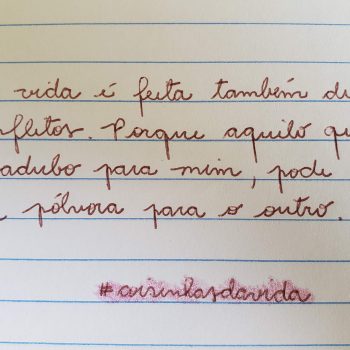 vida é feita também d
nflitos. Porque aquilo qu
adubo para mim, pode
pólvora para o outro.
#coisinhasdavida